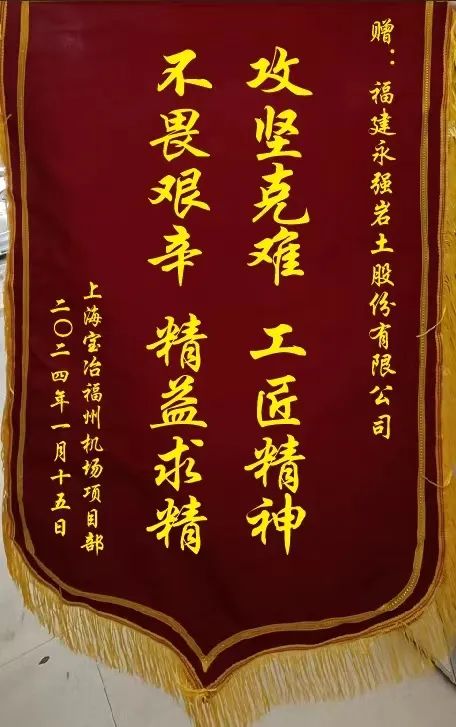 赠：福建永强岩土股份有限公司
攻坚克难 工匠精神
不畏艰辛 精益求精
上海宝冶福州机场项目部
二〇二四年一月十五日